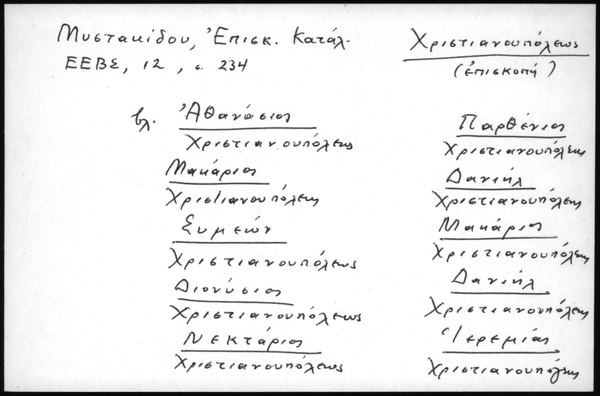 Μυστακίδου, Ἐπισκ. Κατάλ-
ΕΕΒΣ, 12, σ. 234
Χριστιανουπόλεως
(ἐπισκοπή)
βλ. Ἀθανάσιος
Χριστιανουπόλεως
Μακάριος
Χριστιανουπόλεως
Συμεών
Χριστιανουπόλεως
Διονύσιος
Χριστιανουπόλεως
Νεκτάριος
Χριστιανουπόλεως
Παρθένιος
Χριστιανουπόλεως
Δανιήλ
Χριστιανουπόλεως
Μακάριος
Χριστιανουπόλεως
Δανιήλ
Χριστιανουπόλεως
Ἱερεμίας
Χριστιανουπόλεως